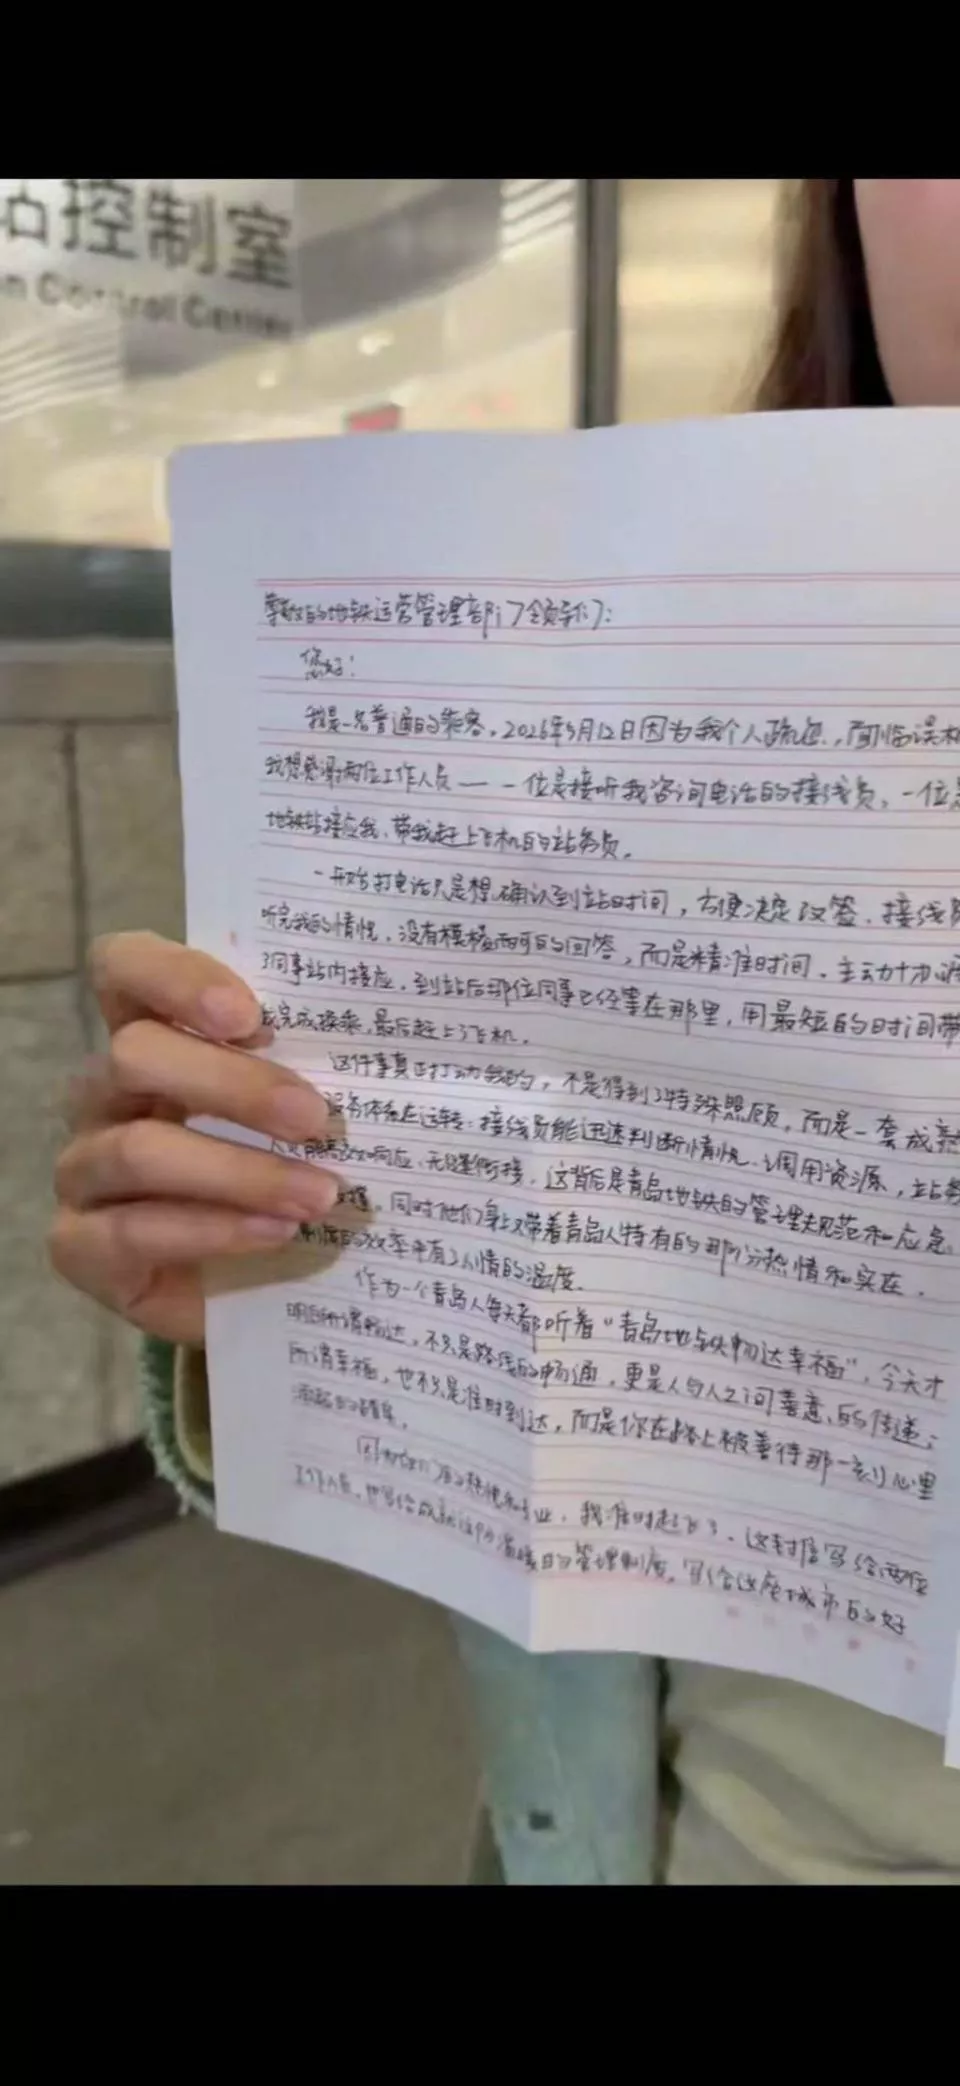 站控制室
n Control Center
尊敬的地铁运营管理部门领导们：
您好！
我是一名普通的乘客，2026年5月12日因为我个人疏忽，面临误机
我想感谢两位工作人员——一位是接听我咨询电话的接线员，一位是
地铁站接应我、带我赶上飞机的站务员。
一开始打电话只是想确认到站时间，方便决定改签，接线员
听完我的情况，没有模棱两可的回答，而是精准时间、主动协调
了同事站内接应，到站后那位同事已经等在那里，用最短的时间带
我完成换乘，最后赶上了飞机。
这件事真正打动我的，不是得到了特殊照顾，而是一套成熟
服务体系在运转：接线员能迅速判断情况、调用资源，站务
人员能高效响应、无缝衔接，这背后是青岛地铁的管理规范和应急
支撑。同时他们身上又带着青岛人特有的那份热情和实在，
制度的效率中有了人情的温度。
作为一个青岛人每天都听着“青岛地铁畅达幸福”，今天才
明白所谓畅达，不只是路线的畅通，更是人与人之间善意的传递；
所谓幸福，也不只是准时到达，而是你在路上被善待那一刻心里
因为你们的热忱和专业，我准时起飞了，这封信写给两位
工作人员，也写给成就这份温暖的管理制度，写给这座城市的好